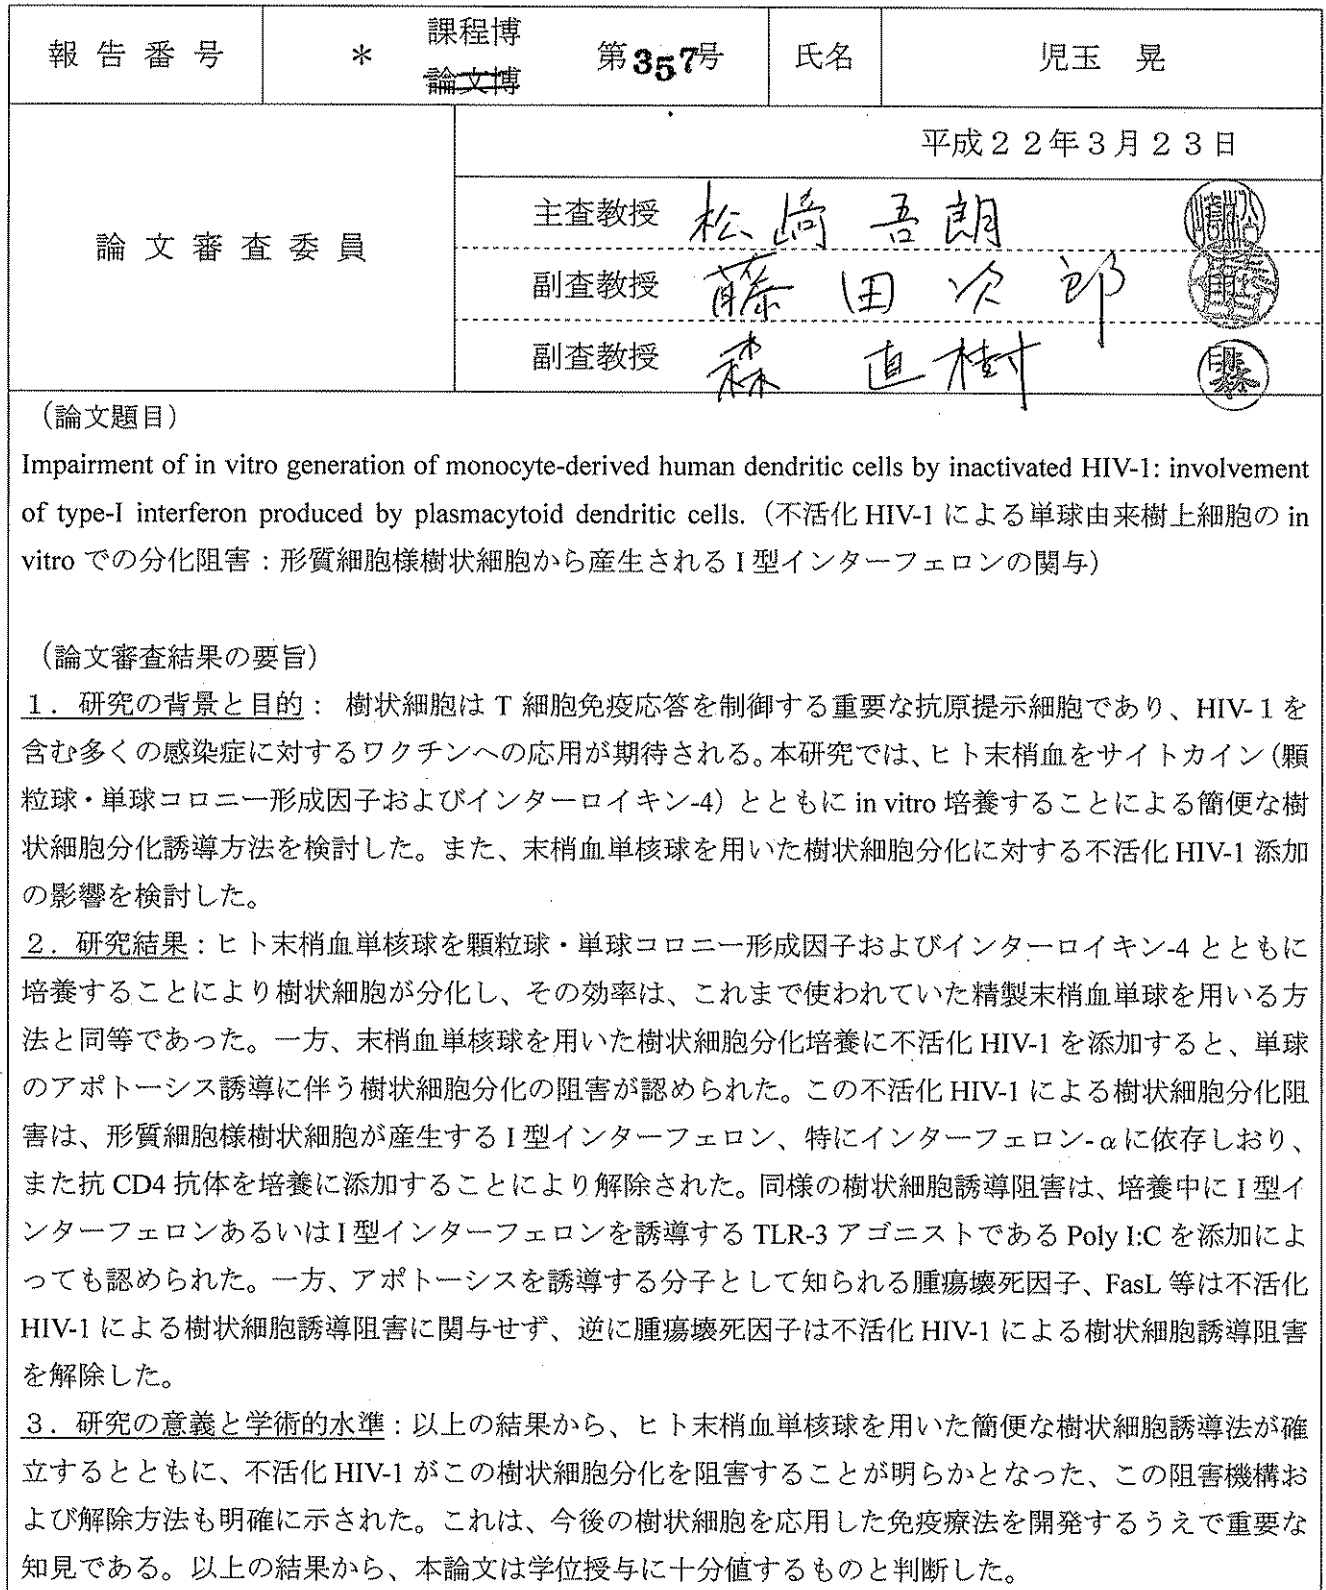 報告番号 * 課程博 論文博 第357号 氏名 児玉 晃
論文審査委員
平成22年3月23日
主査教授 松﨑 吾朗
副査教授 藤田 次郎
副査教授 森 直樹
(論文題目)
Impairment of in vitro generation of monocyte-derived human dendritic cells by inactivated HIV-1: involvement
of type-I interferon produced by plasmacytoid dendritic cells.(不活化 HIV-1 による単球由来樹上細胞の in
vitro での分化阻害:形質細胞様樹状細胞から産生される I 型インターフェロンの関与)
(論文審査結果の要旨)
1.研究の背景と目的: 樹状細胞は T 細胞免疫応答を制御する重要な抗原提示細胞であり、HIV-1を
含む多くの感染症に対するワクチンへの応用が期待される。本研究では、ヒト末梢血をサイトカイン(顆
粒球・単球コロニー形成因子およびインターロイキン-4)とともに in vitro 培養することによる簡便な樹
状細胞分化誘導方法を検討した。また、末梢血単核球を用いた樹状細胞分化に対する不活化 HIV-1 添加
の影響を検討した。
2.研究結果:ヒト末梢血単核球を顆粒球・単球コロニー形成因子およびインターロイキン-4 とともに
培養することにより樹状細胞が分化し、その効率は、これまで使われていた精製末梢血単球を用いる方
法と同等であった。一方、末梢血単核球を用いた樹状細胞分化培養に不活化 HIV-1 を添加すると、単球
のアポトーシス誘導に伴う樹状細胞分化の阻害が認められた。この不活化 HIV-1 による樹状細胞分化阻
害は、形質細胞様樹状細胞が産生する I 型インターフェロン、特にインターフェロン-αに依存しおり、
また抗 CD4 抗体を培養に添加することにより解除された。同様の樹状細胞誘導阻害は、培養中に I 型イ
ンターフェロンあるいは I 型インターフェロンを誘導する TLR-3 アゴニストである Poly I:C を添加によ
っても認められた。一方、アポトーシスを誘導する分子として知られる腫瘍壊死因子、FasL 等は不活化
HIV-1 による樹状細胞誘導阻害に関与せず、逆に腫瘍壊死因子は不活化 HIV-1 による樹状細胞誘導阻害
を解除した。
3.研究の意義と学術的水準:以上の結果から、ヒト末梢血単核球を用いた簡便な樹状細胞誘導法が確
立するとともに、不活化 HIV-1 がこの樹状細胞分化を阻害することが明らかとなった、この阻害機構お
よび解除方法も明確に示された。これは、今後の樹状細胞を応用した免疫療法を開発するうえで重要な
知見である。以上の結果から、本論文は学位授与に十分値するものと判断した。